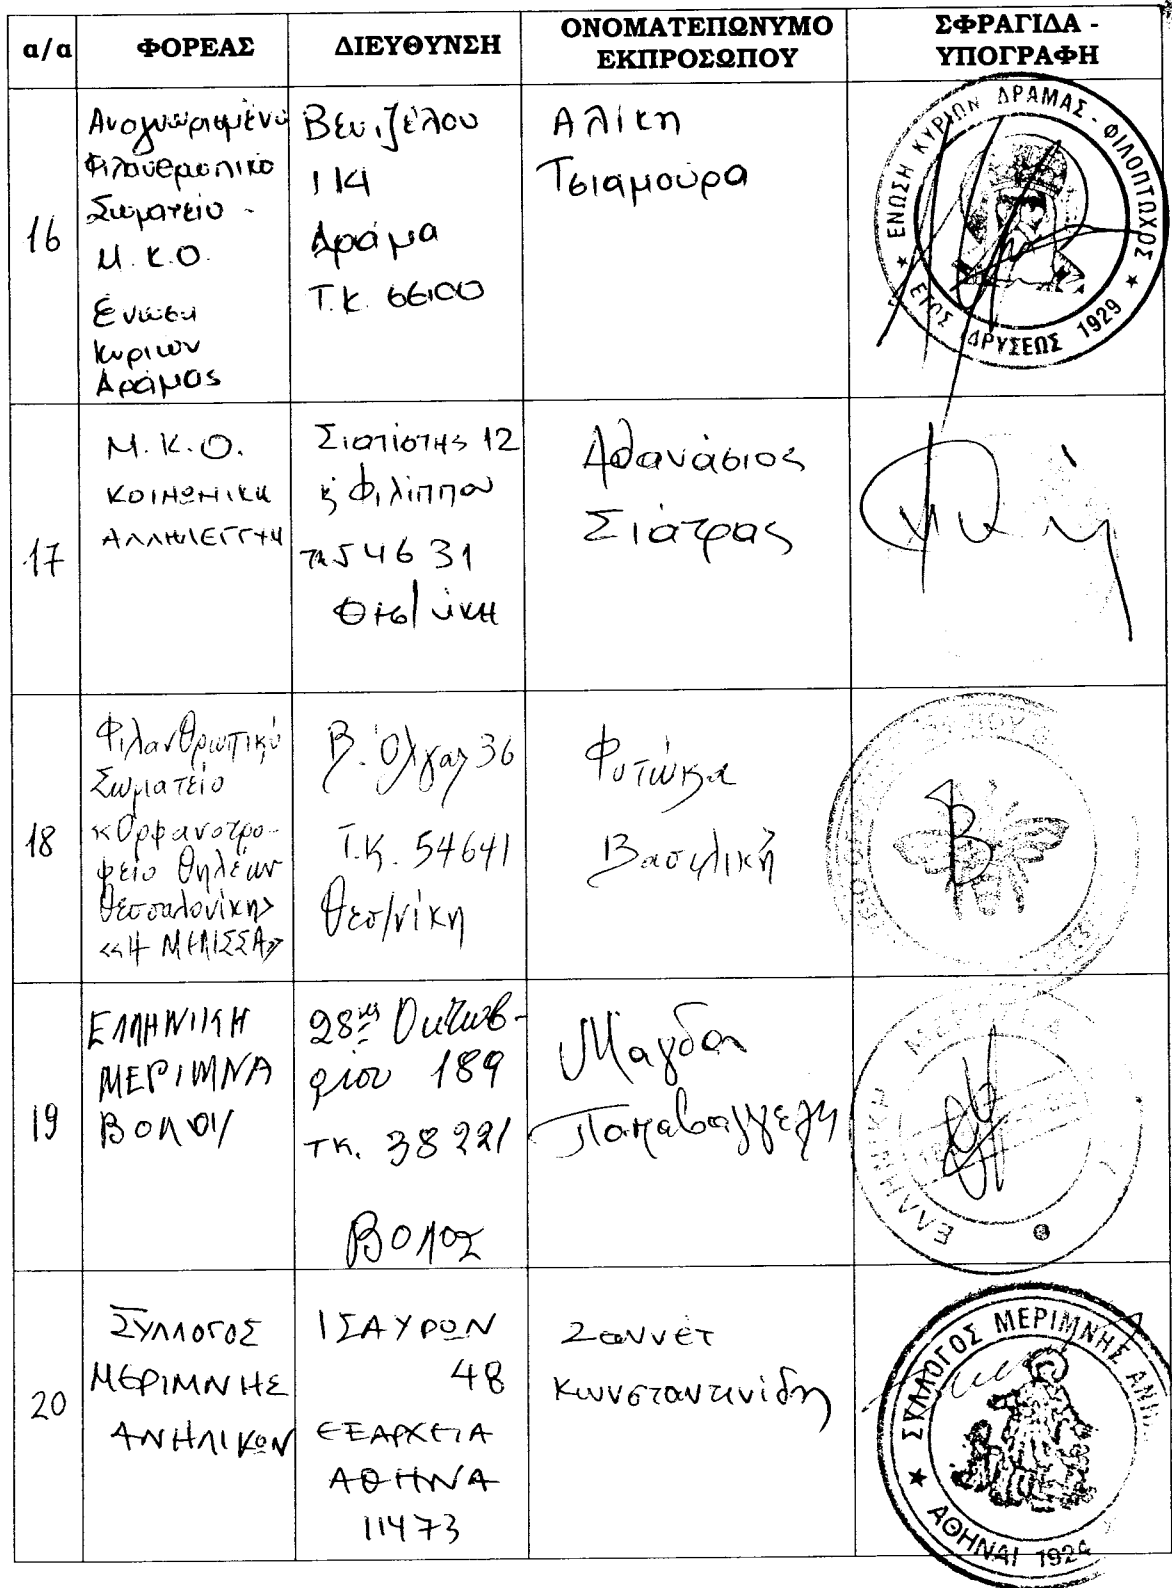 α/α
ΦΟΡΕΑΣ
ΔΙΕΥΘΥΝΣΗ
ΟΝΟΜΑΤΕΠΩΝΥΜΟ
ΕΚΠΡΟΣΩΠΟΥ
ΣΦΡΑΓΙΔΑ -
ΥΠΟΓΡΑΦΗ
16
Αναγνωρισμένο
Φιλανθρωπικό
Σωματείο -
Μ.Κ.Ο.
Ένωση
Κυριών
Δράμας
Βενιζέλου
114
Δράμα
Τ.Κ. 66100
Αλίκη
Τσιαμούρα
ΕΝΩΣΗ ΚΥΡΙΩΝ ΔΡΑΜΑΣ - ΦΙΛΟΠΤΩΧΟΣ
ΕΤΟΣ ΙΔΡΥΣΕΩΣ 1929
17
Μ.Κ.Ο.
ΚΟΙΝΩΝΙΚΗ
ΑΛΛΗΛΕΓΓΥΗ
Σιατίστης 12
κ Φιλίππου
τκ 54631
Θεσ/νίκη
Αθανάσιος
Σιάτρας
18
Φιλανθρωπικό
Σωματείο
«Ορφανοτρο-
φείο Θηλέων
Θεσσαλονίκης
«Η ΜΕΛΙΣΣΑ»
Β. Όλγας 36
Τ.Κ. 54641
Θεσ/νίκη
Φυτώκα
Βασιλική
19
ΕΛΛΗΝΙΚΗ
ΜΕΡΙΜΝΑ
ΒΟΛΟΥ
28ης Οκτωβ-
ρίου 189
ΤΚ. 38221
ΒΟΛΟΣ
Μάγδα
Παπαβαγγέλη
ΕΛΛΗΝΙΚΗ ΜΕΡΙΜΝΑ
20
ΣΥΛΛΟΓΟΣ
ΜΕΡΙΜΝΗΣ
ΑΝΗΛΙΚΩΝ
ΙΣΑΥΡΩΝ
48
ΕΞΑΡΧΕΙΑ
ΑΘΗΝΑ
11473
Ζαννέτ
Κωνσταντινίδη
ΣΥΛΛΟΓΟΣ ΜΕΡΙΜΝΗΣ
ΑΘΗΝΑΙ 1924